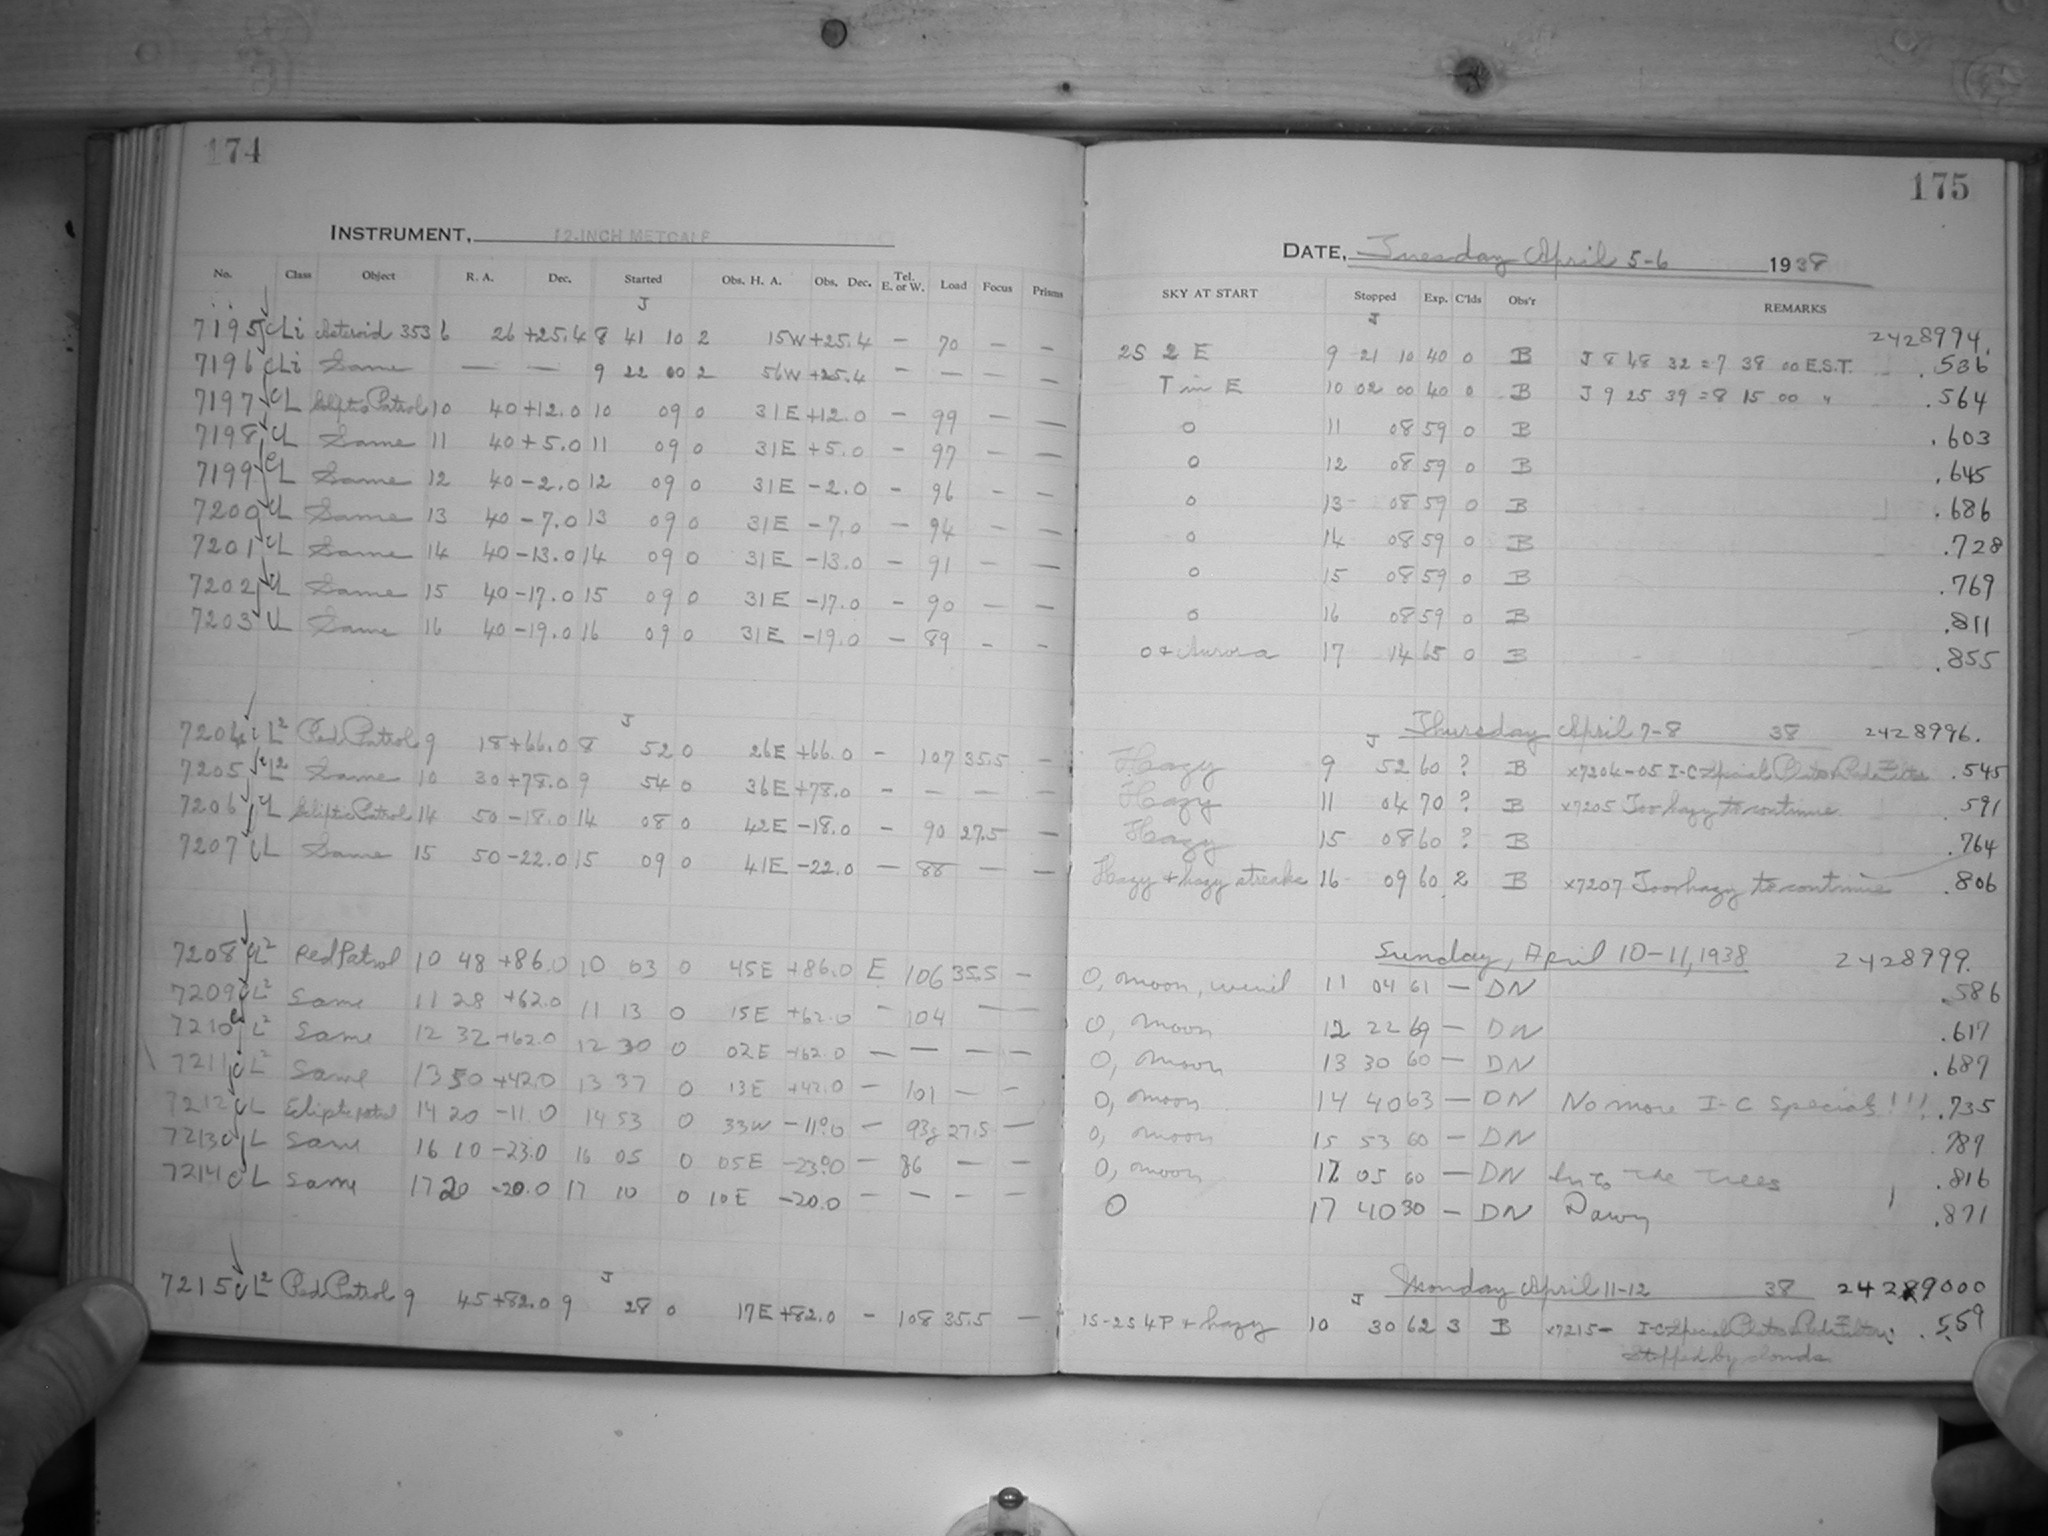 174
INSTRUMENT, 12-INCH METCALF
No. Class Object R. A. Dec. Started Obs. H. A. Obs. Dec. Tel. E. or W. Load Focus Prisms
J
7195 cLi Asteroid 353 6 26 +25.4 8 41 10 2 15W +25.4 - 70 - -
7196 cLi Same — — 9 22 00 2 56W +25.4 - - - -
7197 cL Eliptic Patrol 10 40 +12.0 10 09 0 31E +12.0 - 99 - -
7198 cL Same 11 40 +5.0 11 09 0 31E +5.0 - 97 - -
7199 cL Same 12 40 -2.0 12 09 0 31E -2.0 - 96 - -
7200 cL Same 13 40 -7.0 13 09 0 31E -7.0 - 94 - -
7201 cL Same 14 40 -13.0 14 09 0 31E -13.0 - 91 - -
7202 cL Same 15 40 -17.0 15 09 0 31E -17.0 - 90 - -
7203 cL Same 16 40 -19.0 16 09 0 31E -19.0 - 89 - -
J
7204 cL² Red Patrol 9 18 +66.0 8 52 0 26E +66.0 - 107 35.5 -
7205 cL² Same 10 30 +78.0 9 54 0 36E +78.0 - - - -
7206 cL Eliptic Patrol 14 50 -18.0 14 08 0 42E -18.0 - 90 27.5 -
7207 cL Same 15 50 -22.0 15 09 0 41E -22.0 - 88 - -
7208 cL² Red Patrol 10 48 +86.0 10 03 0 45E +86.0 E 106 35.5 -
7209 cL² Same 11 28 +62.0 11 13 0 15E +62.0 - 104 - -
7210 cL² Same 12 32 +62.0 12 30 0 02E +62.0 - - - -
7211 cL² Same 13 50 +42.0 13 37 0 13E +42.0 - 101 - -
7212 cL Eliptic patrol 14 20 -11.0 14 53 0 33W -11.0 - 93 27.5 -
7213 cL Same 16 10 -23.0 16 05 0 05E -23.0 - 86 - -
7214 cL Same 17 20 -20.0 17 10 0 10E -20.0 - - - -
J
7215 cL² Red Patrol 9 45 +82.0 9 28 0 17E +82.0 - 108 35.5 -
175
DATE, Tuesday April 5-6 1938
SKY AT START Stopped Exp. C'lds Obs'r REMARKS
J 2428994.
2S 2 E 9 21 10 40 0 B J 8 48 32 = 7 38 00 E.S.T. .536
T in E 10 02 00 40 0 B J 9 25 39 = 8 15 00 " .564
0 11 08 59 0 B .603
0 12 08 59 0 B .645
0 13 08 59 0 B .686
0 14 08 59 0 B .728
0 15 08 59 0 B .769
0 16 08 59 0 B .811
0 + Aurora 17 14 65 0 B .855
J Thursday April 7-8 38 2428996.
Hazy 9 52 60 ? B x7204-05 I-C Special Plates Red Filter .545
Hazy 11 04 70 ? B x7205 Too hazy to continue .591
Hazy 15 08 60 ? B .764
Hazy + hazy streaks 16 09 60 2 B x7207 Too hazy to continue .806
Sunday, April 10-11, 1938 2428999.
0, moon, wind 11 04 61 - DN .586
0, moon 12 22 69 - DN .617
0, moon 13 30 60 - DN .687
0, moon 14 40 63 - DN No more I-C Specials!!! .735
0, moon 15 53 60 - DN .787
0, moon 17 05 60 - DN Into the Trees .816
0 17 40 30 - DN Dawn .871
J Monday April 11-12 38 2429000
1S-2S 4P + hazy 10 30 62 3 B x7215- I-C Special Plates Red Filter .559
Stopped by clouds